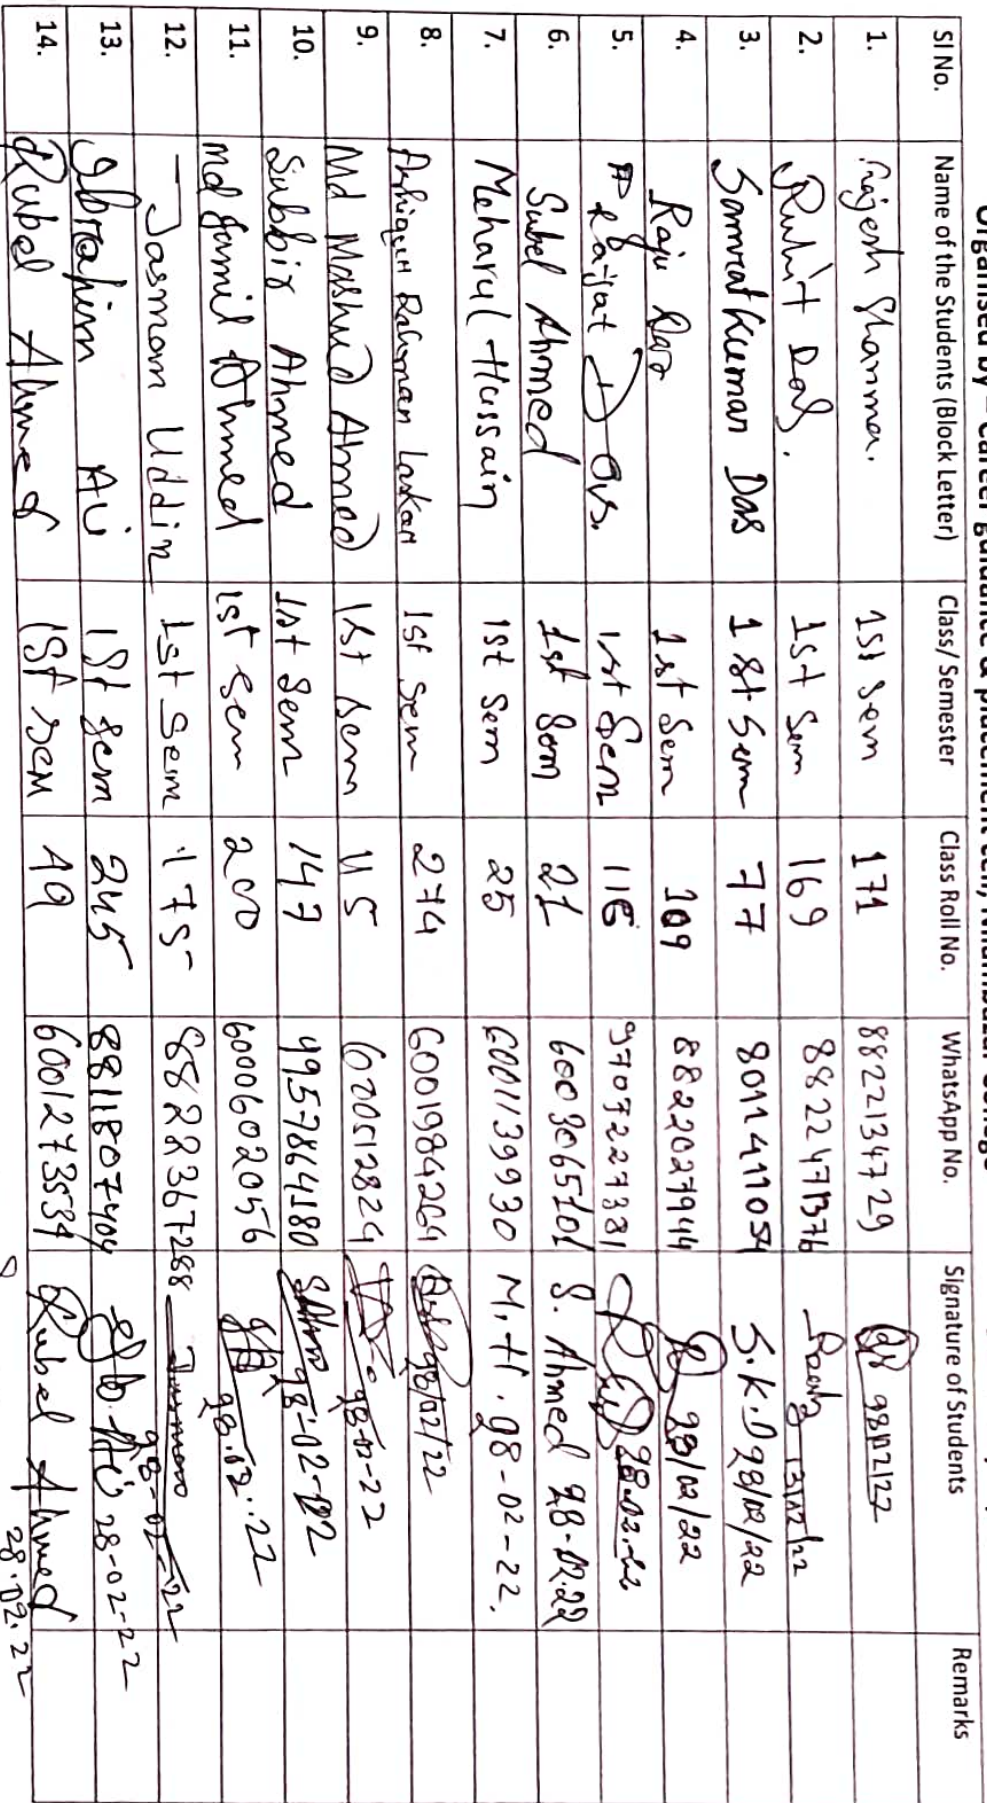 Organised by – Career guidance & placement cell, Nilambazar College
Sl No. Name of the Students (Block Letter) Class/ Semester Class Roll No. WhatsApp No. Signature of Students Remarks
1. Rajesh Sharma. 1st Sem 171 8822134729 28/02/22
2. Ruhit Das. 1st Sem 169
3. Samrat Kumar Das 1st Sem 77 8011411054 S.K.D 28/02/22
4. Raju Das 1st Sem 109 8822027944 28/02/22
5. Das. 1st Sem 116 9707227381 28.02.22
6. Subel Ahmed 1st Sem 21 6003065701 S. Ahmed 28.02.22
7. Meharul Hussain 1st Sem 25 6001139930 M. H. 28-02-22.
8. Rahman Laskar 1st Sem 274 6001984264 28/02/22
9. Md Mashud Ahmed 1st Sem 115 600512824 28-02-22
10. Subbir Ahmed 1st Sem 147 9957864180 28-02-22
11. Md Jamil Ahmed 1st Sem 200 6000602056 28.02.22
12. Jasmam Uddin 1st Sem 175 28-02-22
13. Ibrahim Ali 1st Sem 245 8811807404 Ib. Ali 28-02-22
14. Rubel Ahmed 1st Sem 49 6001273534 Rubel Ahmed
28.02.22